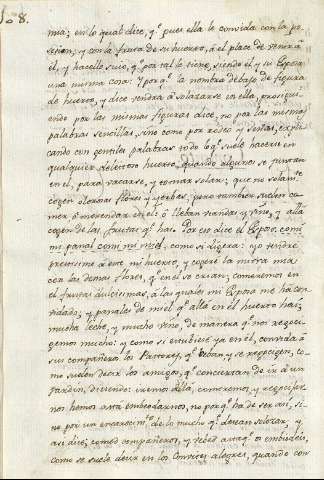 mia; en lo qual dice, q.e pues ella le convida con la po-
sesion, y con la fruta de su huerto, á él place de venir á
él, y hacello suyo, q.e por tal lo tiene, siendo él y su Esposa
una misma cosa: Y por q.e la nombra debajo de figura
de huerto, y dice vendrá á solazarse en ella, prosigui-
endo por las mismas figuras dice, no por las mismas
palabras sencillas, sino como por rodeo y señas, expli-
cando con gentiles palabras todo lo q.e suele hacerse en
qualquier deleitoso huerto, quando algunos se juntan
en él, para recrearse, y tomar solaz; que no solam.te
cogen olorosas flores y yerbas, pero tambien suelen co-
mer ó merendar en él: ó llevan viandas y vino, y allá
cogen de las frutas q.e hai. Por eso dice el Esposo, comí
mi panal con mi miel, como si dijera: yo vendré
á este mi huerto, y cogeré la mirra mia
con las demas flores, q.e en él se crian; comeremos en
él frutas dulcisimas, á las quales mi Esposa me ha con-
vidado; y panales de miel q.e allá en el huerto hai;
mucha leche, y mucho vino, de manera q.e nos regoci-
gemos mucho: y como si estubiese ya en él, convida á
sus compañeros los Pastores, q.e beban, y se regocigen, co-
mo suelen decir los amigos, q.e conciertan de ir á un
jardin, diciendo: iremos allá, comeremos, y regocijar
nos hemos asta embeodarnos, no por q.e ha de ser asi, si-
no por un encarecim.to de lo mucho q.e desean solazar; y
asi dice; comed compañeros, y bebed asta q.e os embeodeis,
como se suele decir en los Convites alegres, quando con